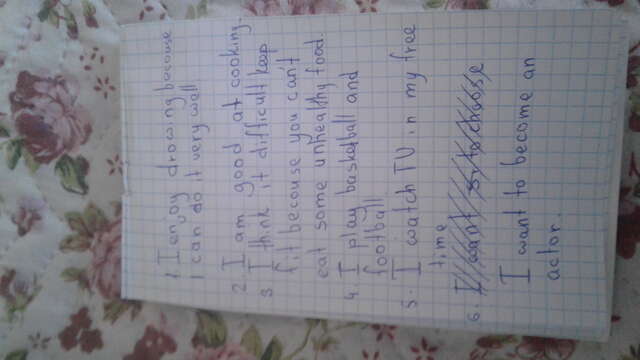 1. I enjoy drowing becouse
I can do it very well
2. I am good at cooking.
3. I think it difficult keep
fit becouse you can't
eat some unhealthy food.
4. I play basketball and
football.
5. I watch TV in my free
time
6. I want to choose
I want to become an
actor.